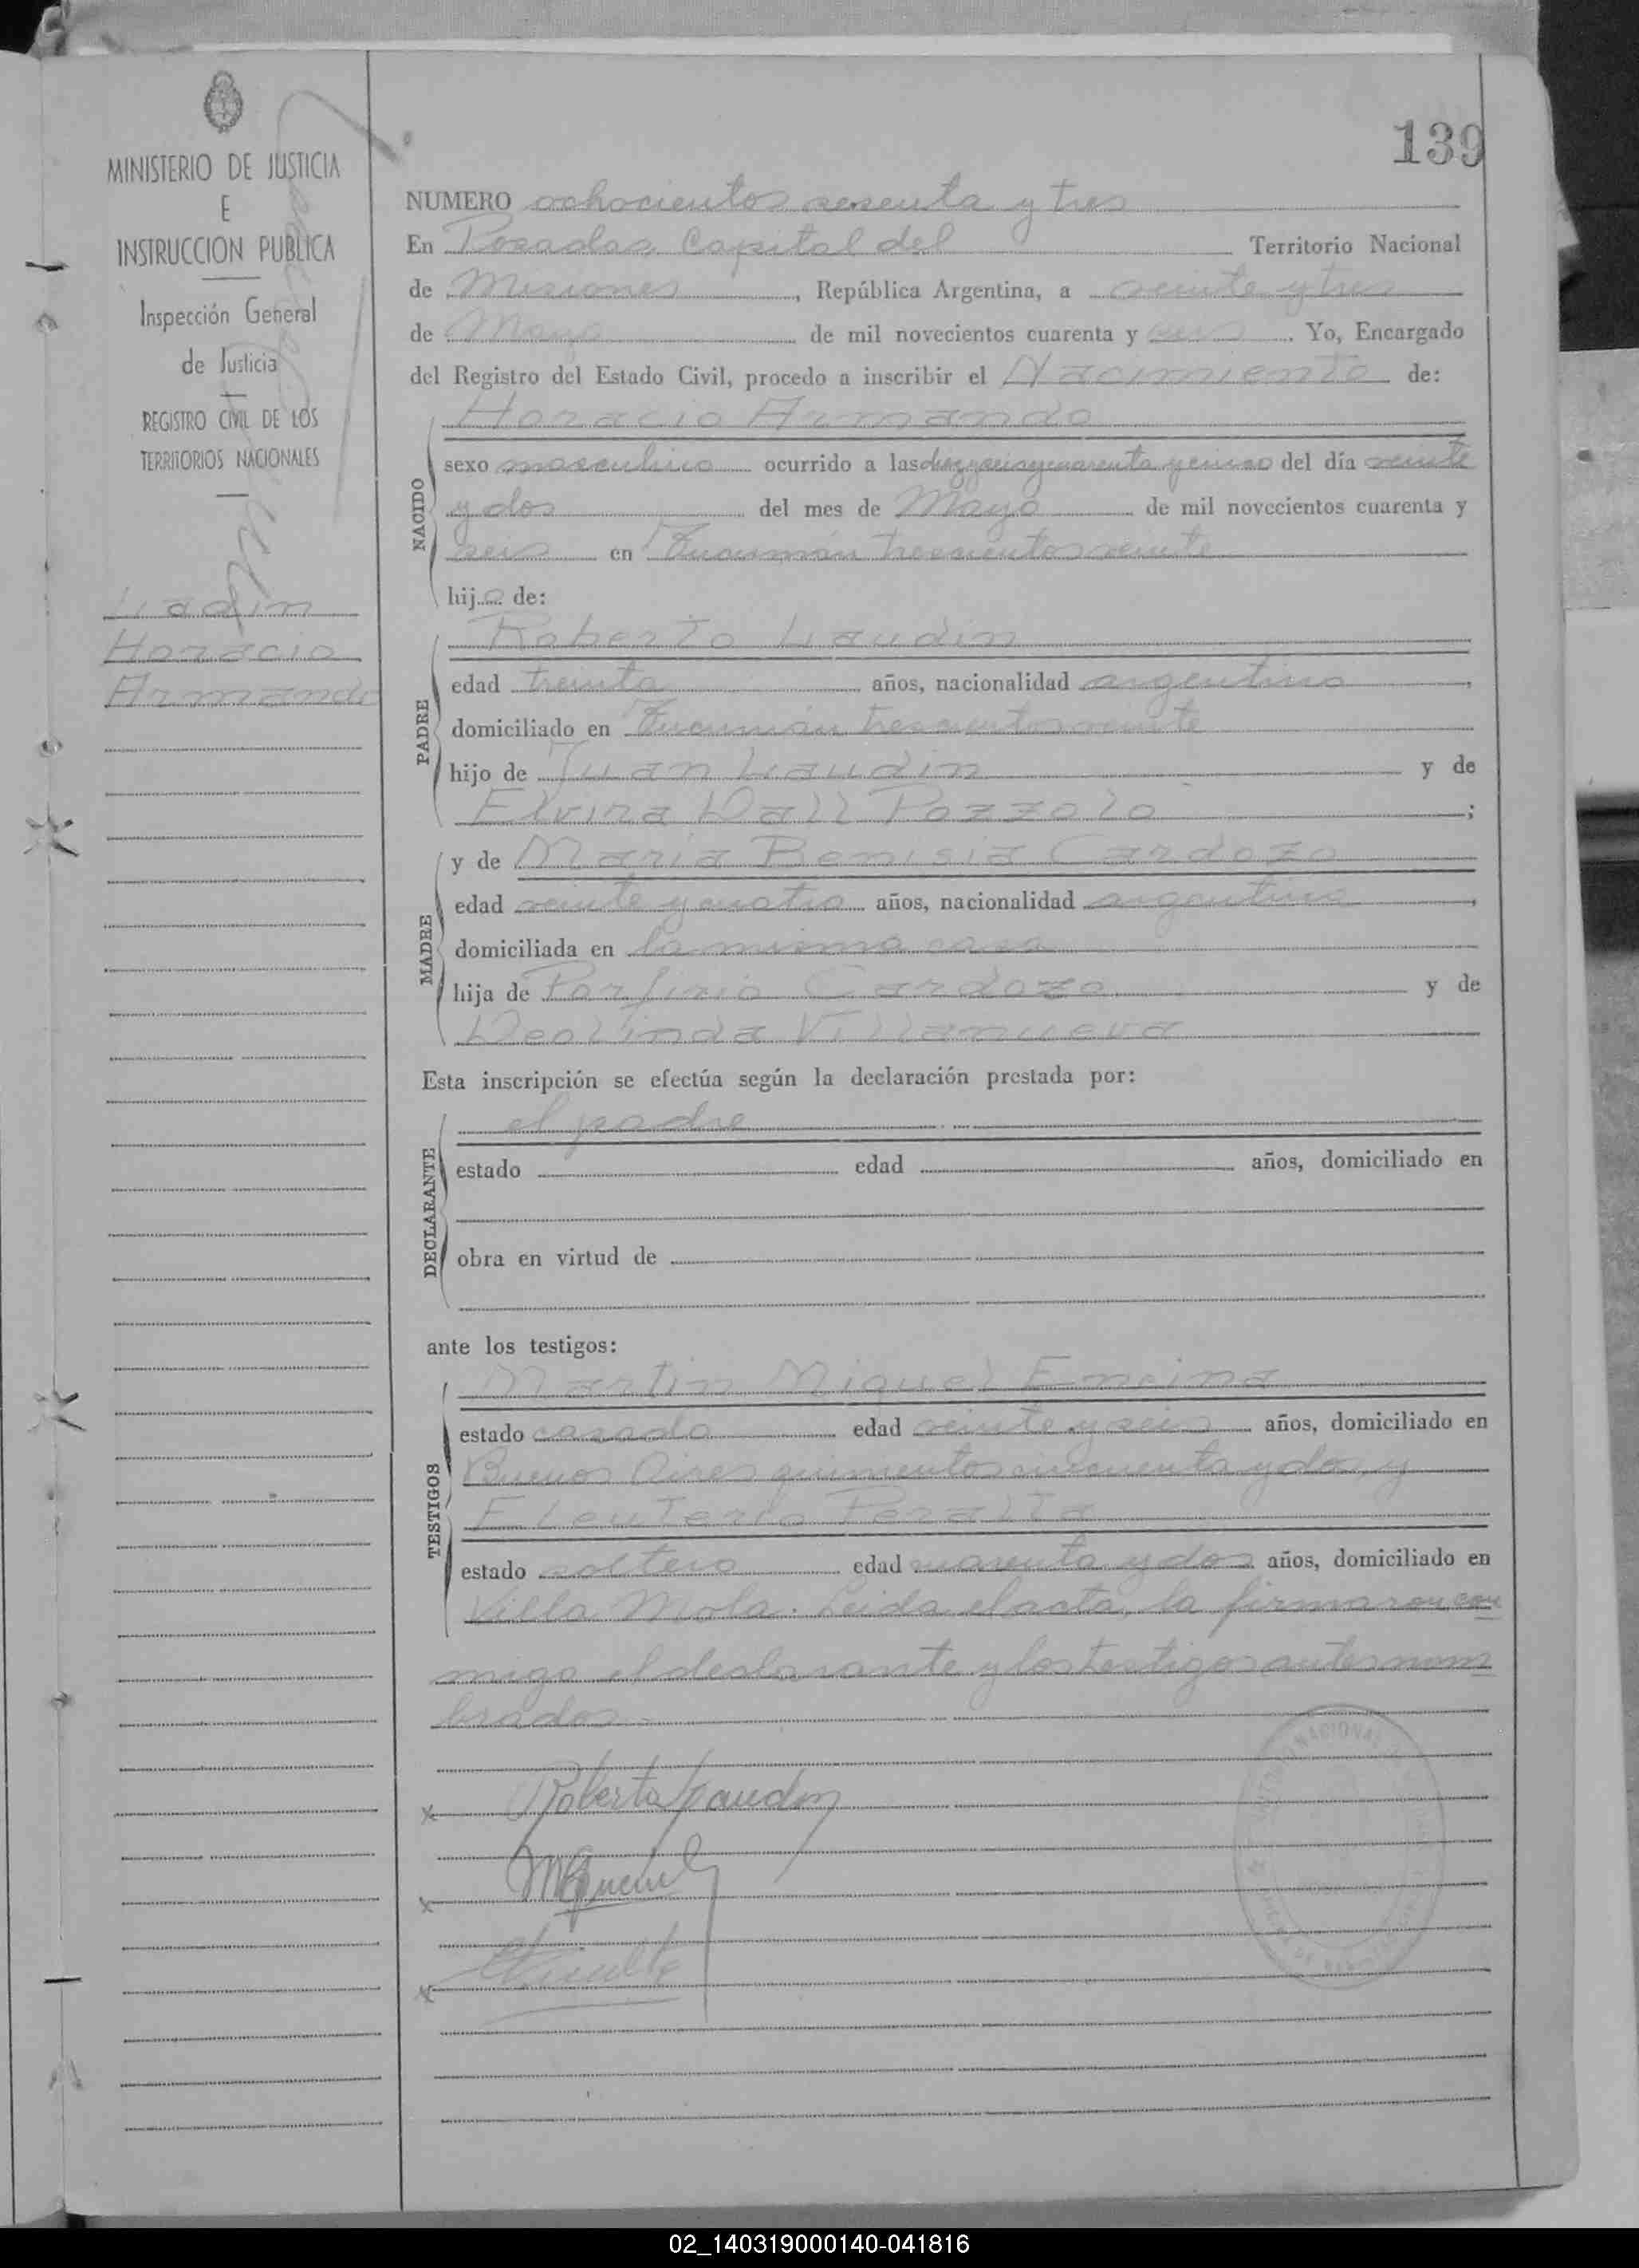 139
MINISTERIO DE JUSTICIA
E
INSTRUCCION PUBLICA
Inspección General
de Justicia
REGISTRO CIVIL DE LOS
TERRITORIOS NACIONALES
Horacio
Armando
NUMERO ochocientos sesenta y tres
En Posadas, Capital del Territorio Nacional
de Misiones, República Argentina, a veinte y tres
de Mayo de mil novecientos cuarenta y seis. Yo, Encargado
del Registro del Estado Civil, procedo a inscribir el Nacimiento de:
Horacio Armando
NACIDO
sexo masculino ocurrido a las diez y seis y cuarenta y cinco del día veinte
y dos del mes de Mayo de mil novecientos cuarenta y
seis en Tucumán trescientos veinte
hijo de:
PADRE
Roberto Liaudin
edad treinta años, nacionalidad argentino,
domiciliado en Tucumán trescientos veinte
hijo de Juan Liaudin y de
Elvira Dall Pozzolo;
MADRE
y de Maria Benisia Cardozo
edad veinte y cuatro años, nacionalidad argentina,
domiciliada en la misma casa
hija de Porfirio Cardozo y de
Deolinda Villanueva
Esta inscripción se efectúa según la declaración prestada por:
DECLARANTE
el padre
estado edad años, domiciliado en
obra en virtud de
ante los testigos:
TESTIGOS
Martin Miguel Encina
estado casado edad veinte y seis años, domiciliado en
Buenos Aires quinientos cincuenta y dos, y
Eleuterio Peralta
estado soltero edad cuarenta y dos años, domiciliado en
Villa Mola. Leida el acta, la firmaron con
migo el declarante y los testigos antes nom
brados.
Roberto Liaudin
NACIONAL
02_140319000140-041816